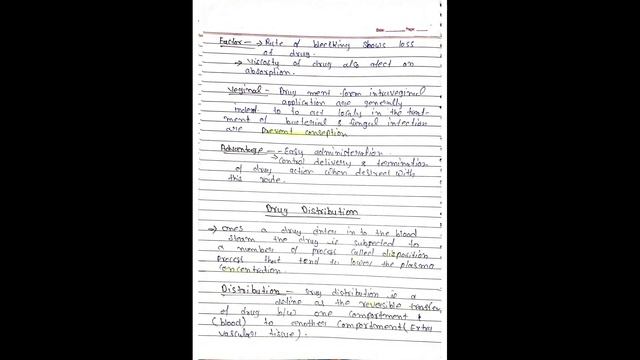 Date Page
Factor - → Rate of bleeking shows loss
of drug.
→ Viscosity of drug also afect on
absorption.
Veginal - Drug ment form intraveginal
application are generally
indent to to act locally in the treat-
ment of bacterial & fungal infection
are prevent conseption
Advantage - - Easy administeration
→ Control delivery & termination
of drug action when desired with
this route.
Drug Distribution
→ Ones a drug enter in to the blood
steam the drug is subjected to
a number of process called disposition
process that tend to lower the plasma
concentration.
Distribution - Drug distribution is a
define as the reversible transfer
of drug b/w one compartment
(blood) to another compartment (Extra
vascular tissue).